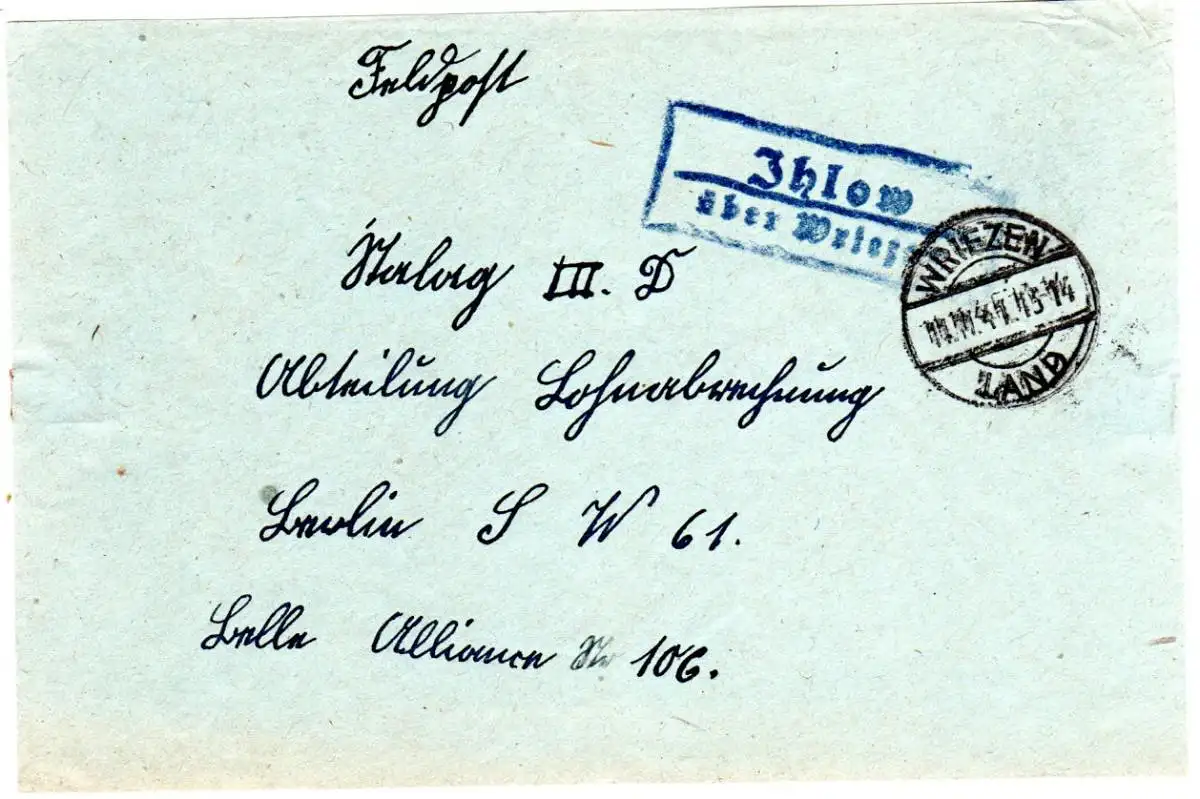 Feldpost
Ihlow
über Wriez
WRIEZEN
LAND
Stalag III. D
Abteilung Lohnabrechnung
Berlin S W 61.
Belle Alliance Str 106.